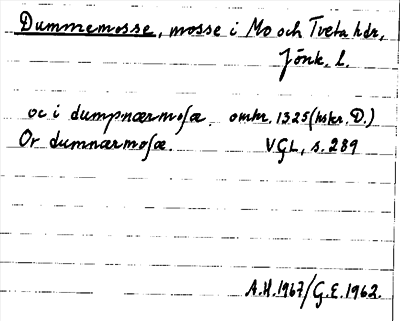 Dummemosse, mosse i Mo och Tveta hdr,
Jönk. l.
oc i dumpnærmoſæ. omkr. 1325 (hskr. D.)
Or dumnærmoſæ. VGL, s. 289
A.H. 1967/G.E. 1962.